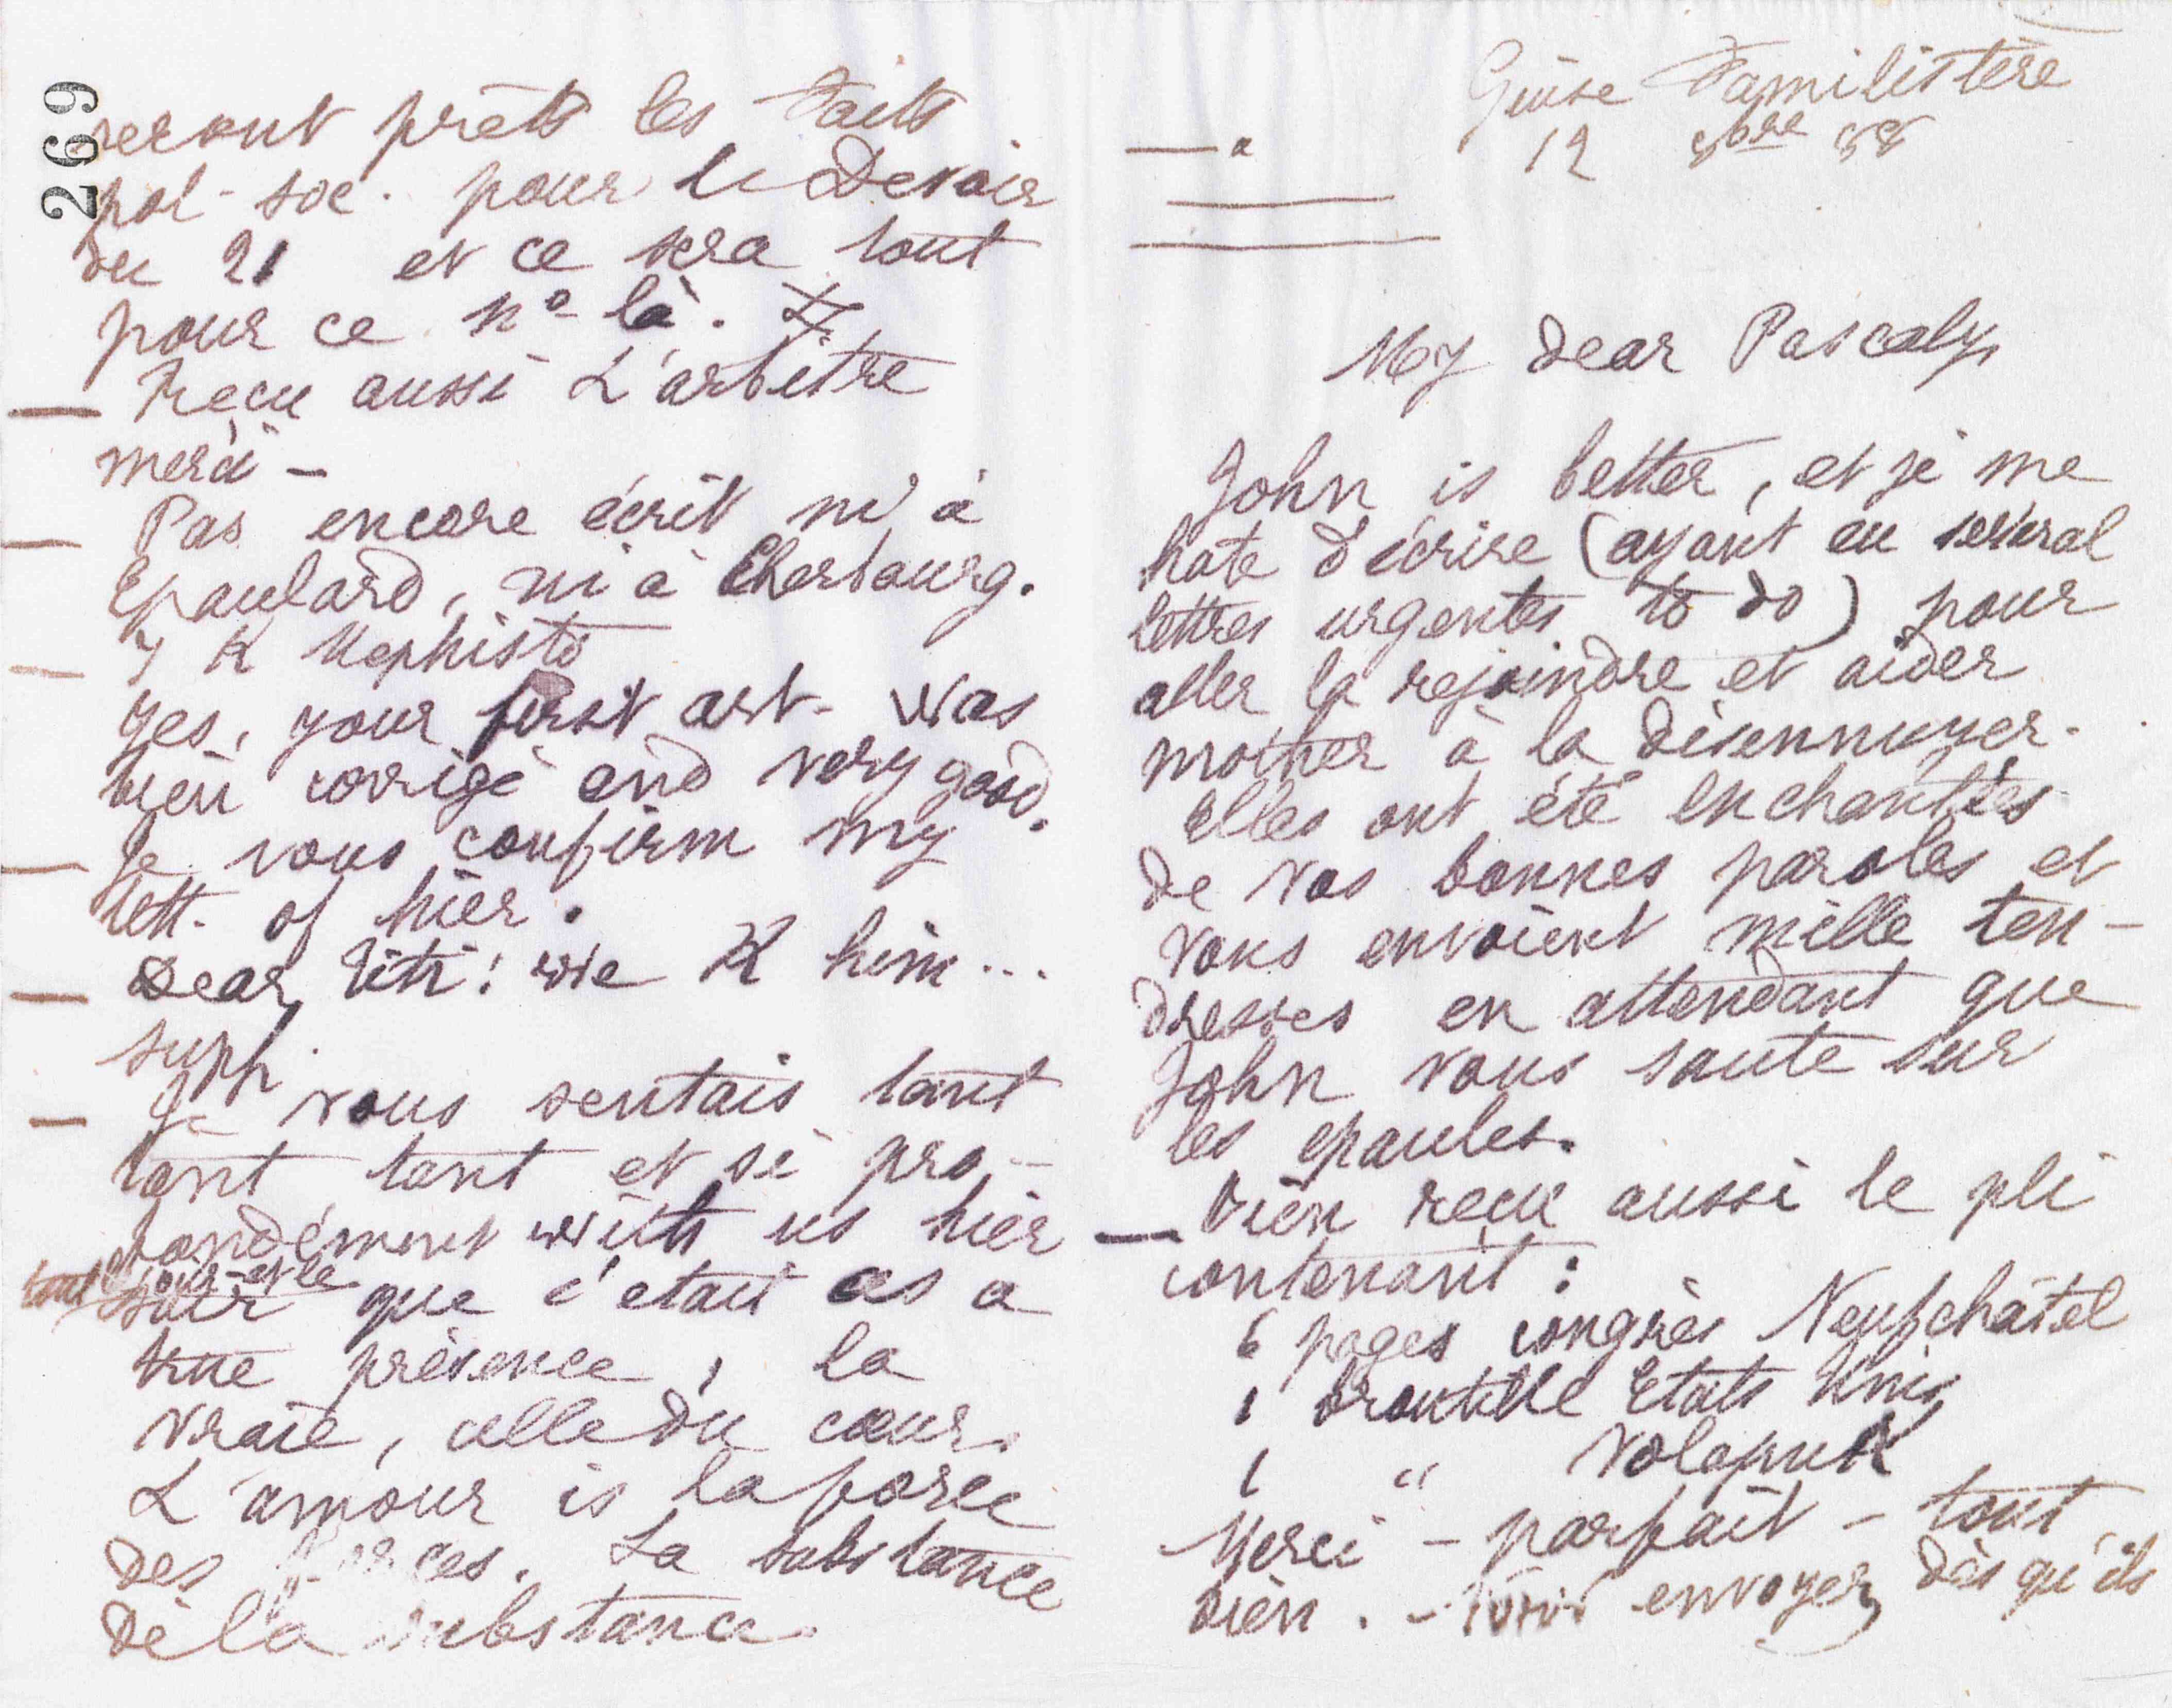 Guise Familistère
12 8bre 88
My dear Pascaly,
John is better, et je me
hate d'écrire (ayant eu several
lettres urgentes to do) pour
aller la rejoindre et aider
mother à la désennuyer.
Elles ont été enchantées
de vos bonnes paroles et
vous envoient mille ten-
dresses en attendant que
John vous saute sur
les epaules.
— Bien reçu aussi le pli
contenant :
6 pages congrès Neufchâtel
1 broutille Etats Unis
1 " Volapuk
Merci - parfait - tout
bien. - envoyez dès qu'ils
269
seront prêts les Faits
pol- soc. pour le Devoir
du 21 et ce sera tout
pour ce nº là.
— Reçu aussi L'arbitre
merci -
— Pas encore écrit ni à
Epaulard, ni à Cherbourg.
— I K Mephisto
Yes, your first art. was
bien corrigé and very good.
— Je vous confirm my
lett. of hier.
— Dear Titi! We K him...
supp.
— Je vous sentais tant
tant tant et si pro-
fondément with us hier
tout le jour et le
soir que c'etait as a
true présence, la
vraie, celle du cœur.
L'amour is la force
des forces. La substance
de la substance.